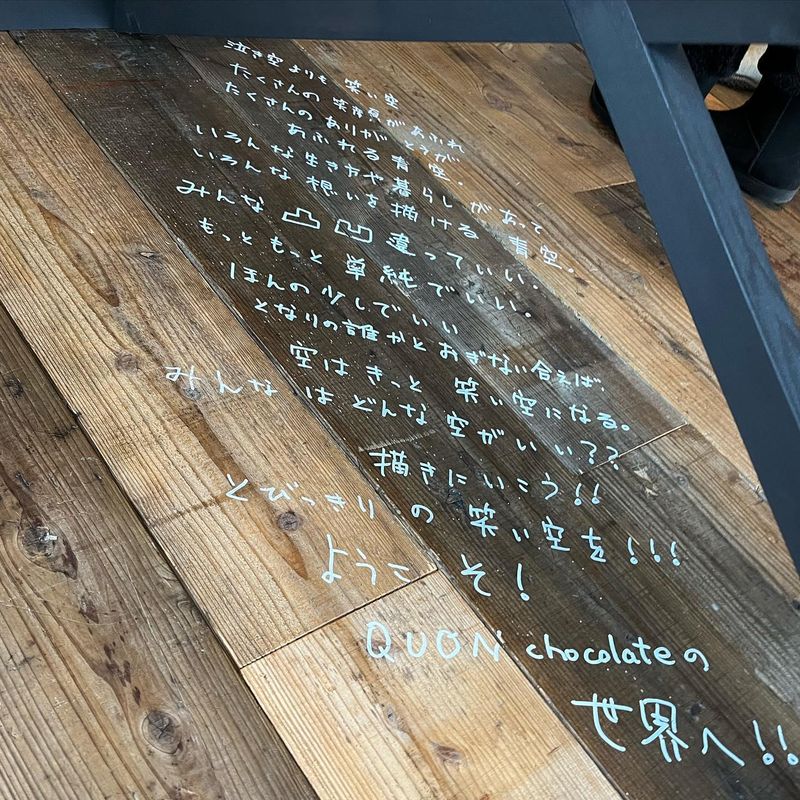 泣き空よりも 笑い空
たくさんの 笑顔があふれ
たくさんの ありがとうが
あふれる 青空。
いろんな 生き方や暮らしがあって
いろんな 想いを 描ける 青空。
みんな 凸凹 違っていい。
もっと もっと 単純でいい。
ほんの少しでいい
となりの誰かと おぎない合えば、
空は きっと 笑い空になる。
みんな は どんな 空が いい??
描きにいこう!!
とびっきり の 笑い空を!!!
ようこそ!
QUON chocolateの
世界へ!!